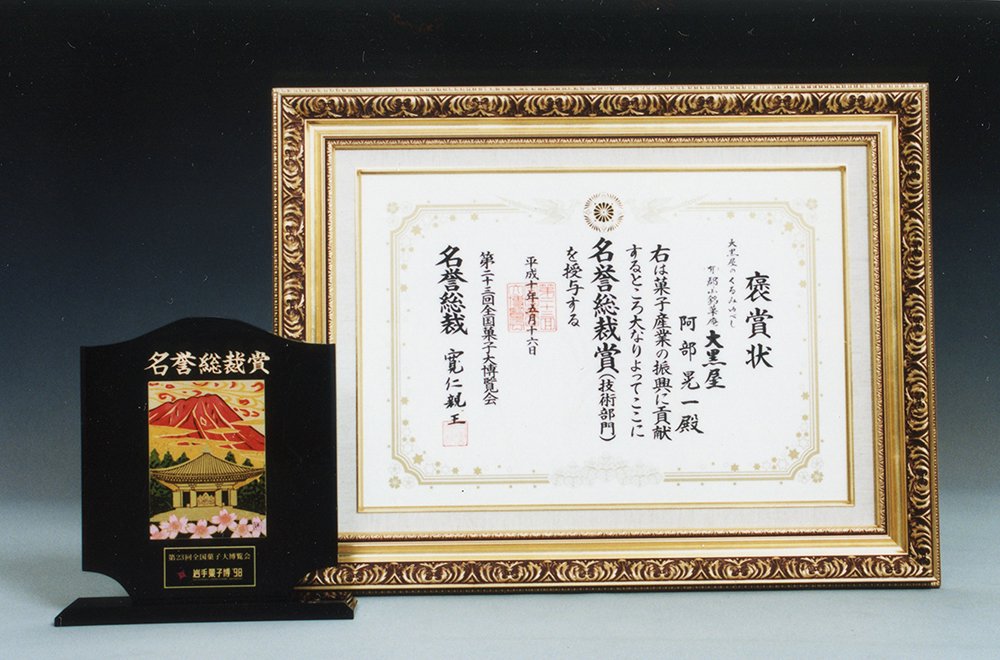 褒賞状
大黒屋のくるみゆべし
大黒屋
阿部晃一殿
右は菓子産業の振興に貢献
するところ大なりよってここに
名誉総裁賞(技術部門)
を授与する
平成十年五月十六日
第二十三回全国菓子大博覧会
名誉総裁 寛仁親王
名誉総裁賞
第23回全国菓子大博覧会
岩手菓子博'98